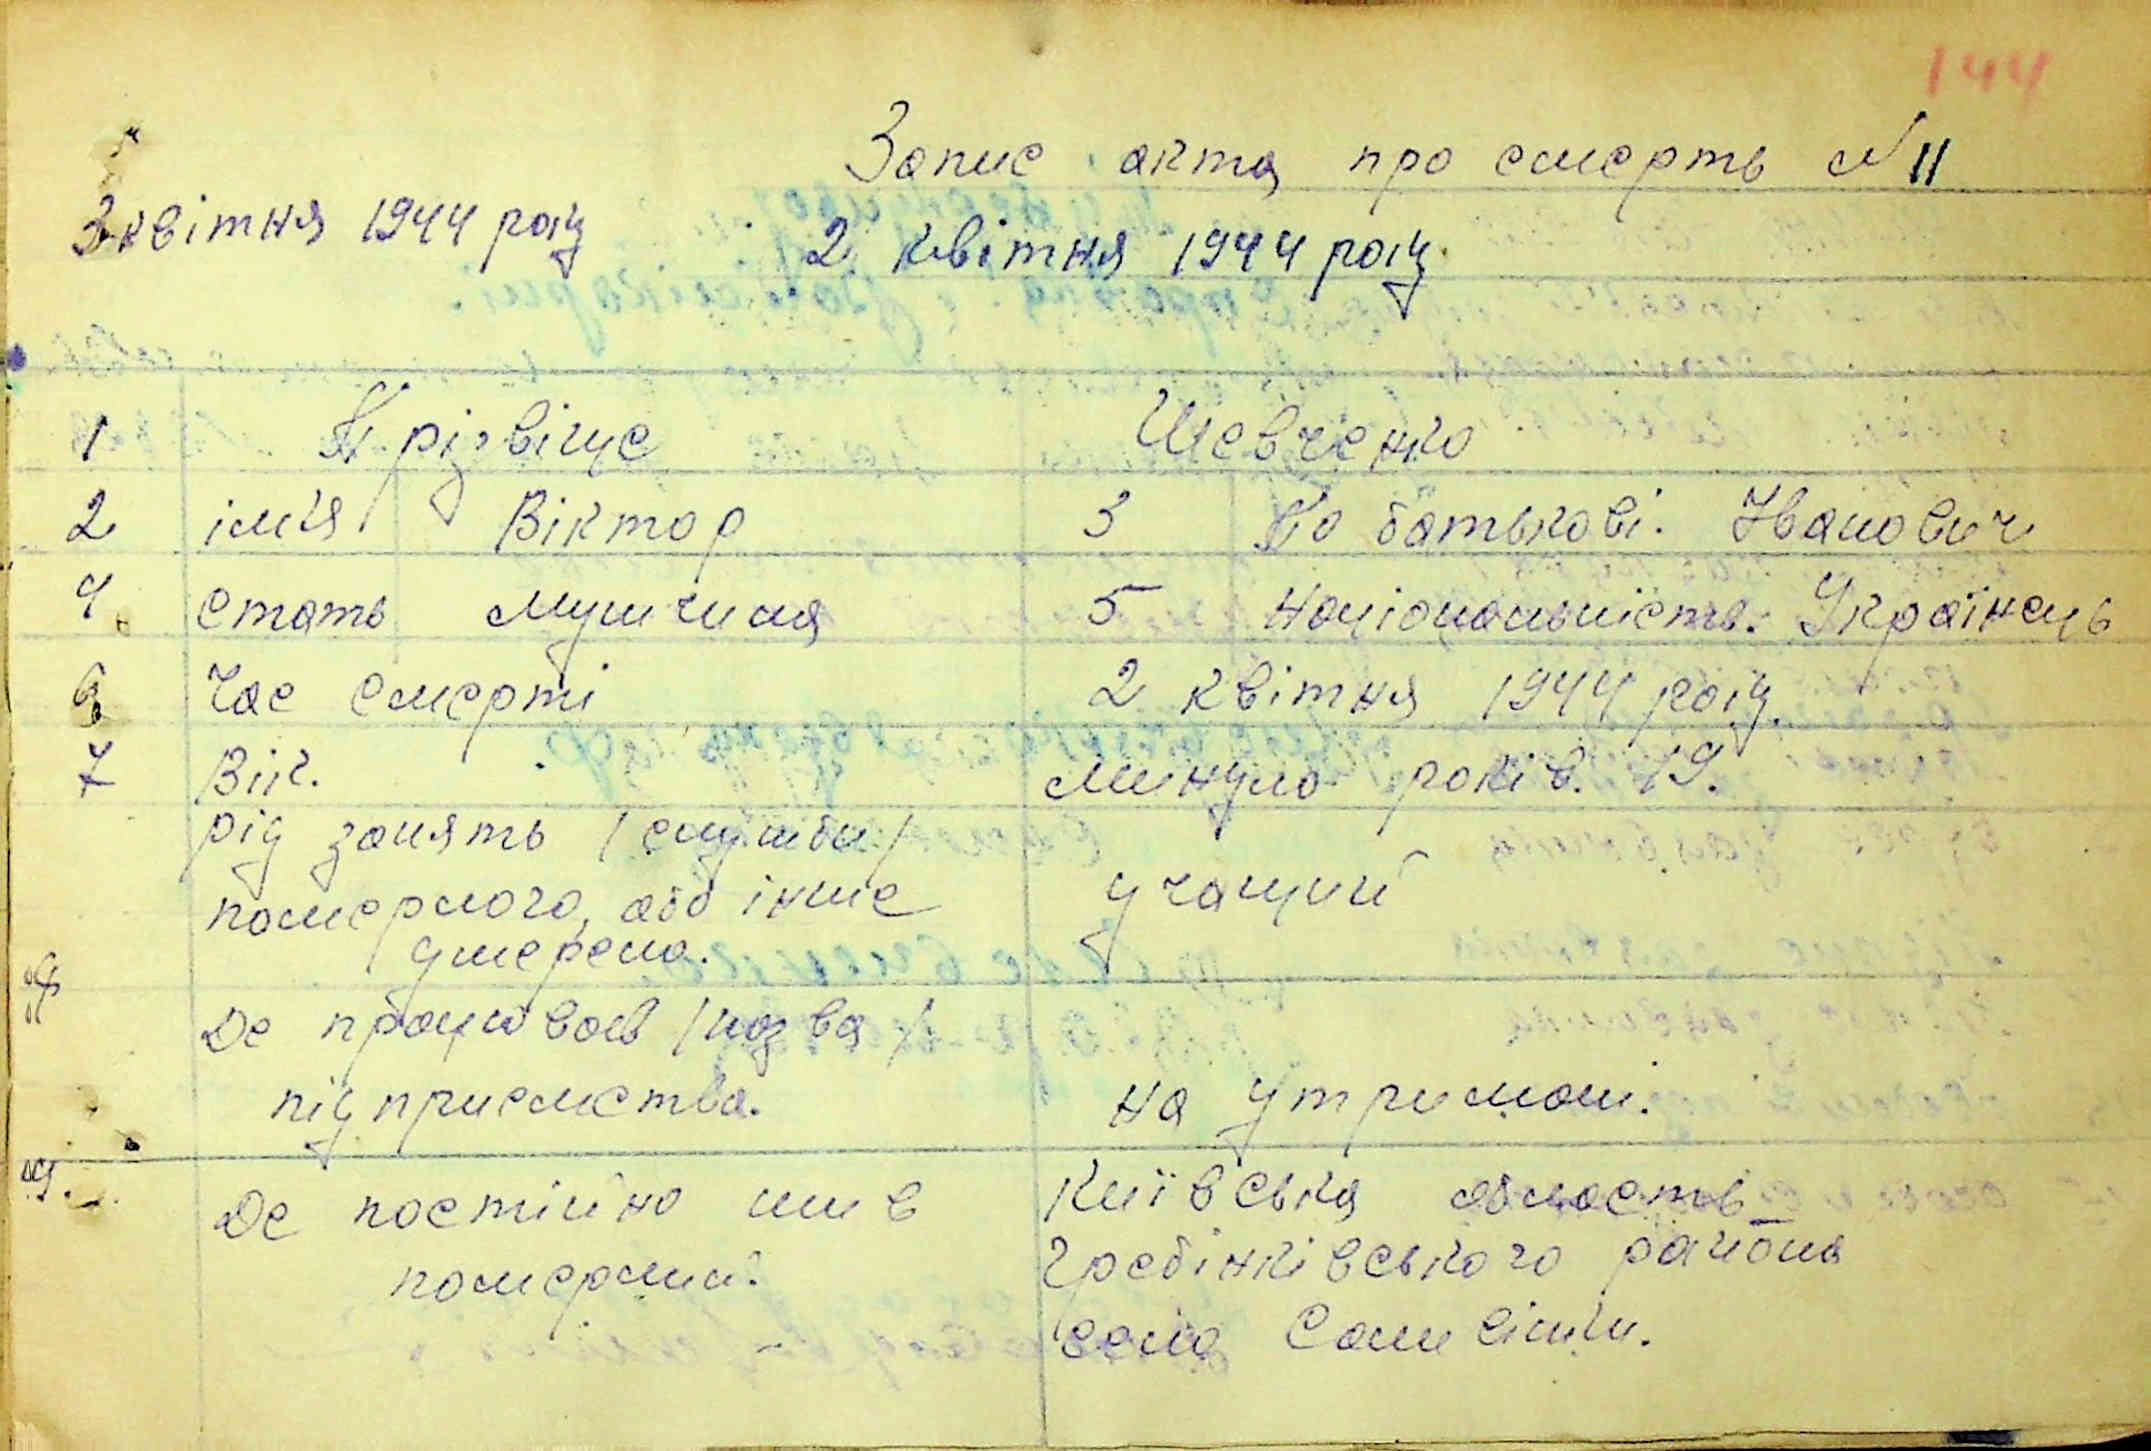 144
Запис акта про смерть №11
3 квітня 1944 року 2 квітня 1944 року.
1 Прізвіще Шевченко
2 імя Віктор 3 По батькові. Іванович
4 стать мушчина 5 Національність. Українець
6 Час смерті 2 квітня 1944 року.
7 Вік. минуло років. 19.
рід занять /служби/
померлого, або інше учащий
джерело.
8
Де працював /назва/
підприемства. на утримані.
9. Де постійно жив Київська область
померлий. Гребінківського района
село Саливінки.